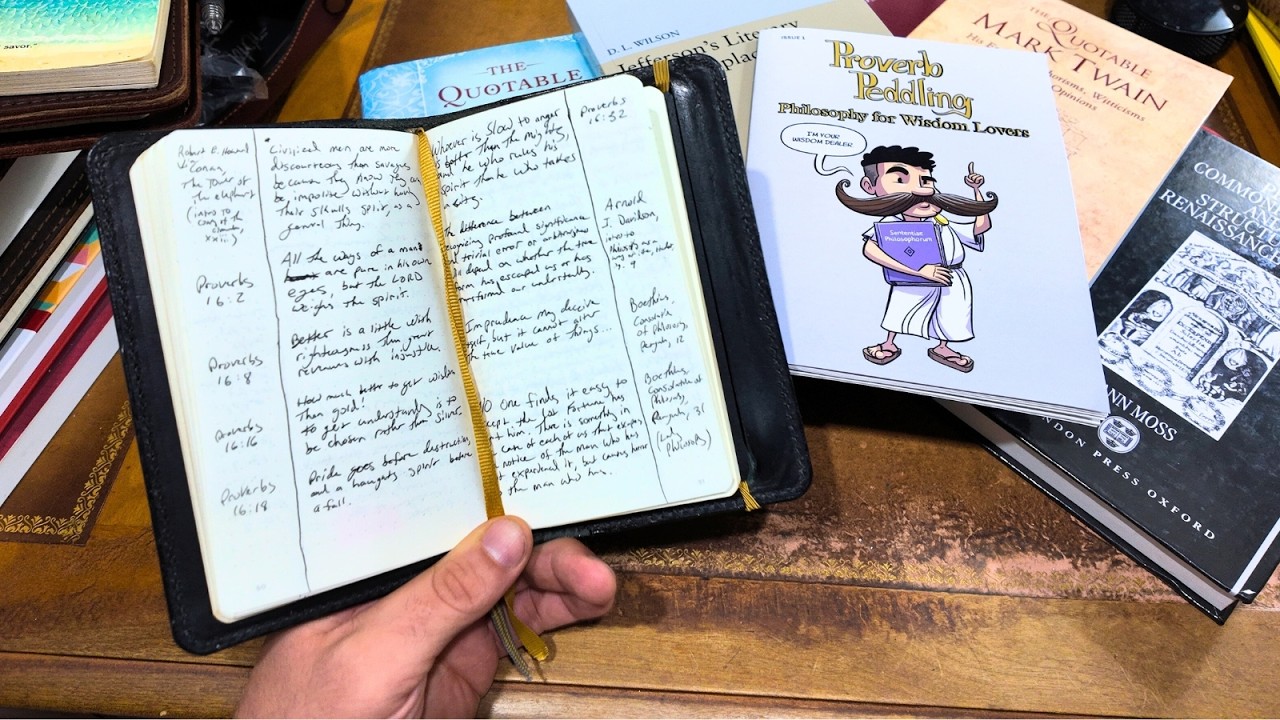 savor."
THE
QUOTABLE
D. L. WILSON
Jefferson's Literary
ISSUE 1
Proverb
Peddling
Philosophy for Wisdom Lovers
I'M YOUR
WISDOM DEALER
Sententiae
Philosophorum
THE
QUOTABLE
MARK TWAIN
Witticisms
Opinions
COMMON
STRUCT
RENAISSANCE
ANN MOSS
OXFORD
Robert E. Howard
Conan,
The Tower of
the elephant
(intro to
xxii)
"Civilized men are more
discourteous than savages
because they know they can
be impolite without having
their skulls split, as a
general thing.
Proverbs
16:2
All the ways of a man
are pure in his own
eyes, but the LORD
weighs the spirit.
Proverbs
16:8
Better is a little with
righteousness than great
revenues with injustice.
Proverbs
16:16
How much better to get wisdom
than gold!
to get understanding is to
be chosen rather than silver.
Proverbs
16:18
Pride goes before destruction,
and a haughty spirit before
a fall.
Whoever is slow to anger
is better than the mighty,
and he who rules his
spirit than he who takes
a city.
Proverbs
16:32
difference between
profound significance
trivial error or
depend on whether the
has escaped us or has
our understanding.
Arnold
I. Davidson,
intro to
Imprudence may deceive
but it cannot alter
the true value of things...
Boethius,
Consolation
of Philosophy,
Penguin, 12
No one finds it easy to
accept the lot Fortune has
sent him. There is something in
of each of us that escapes
notice of the man who has
it, but
the man who has.
Boethius,
Consolation of
Philosophy,
Penguin, 31
(Lady
Philosophy)